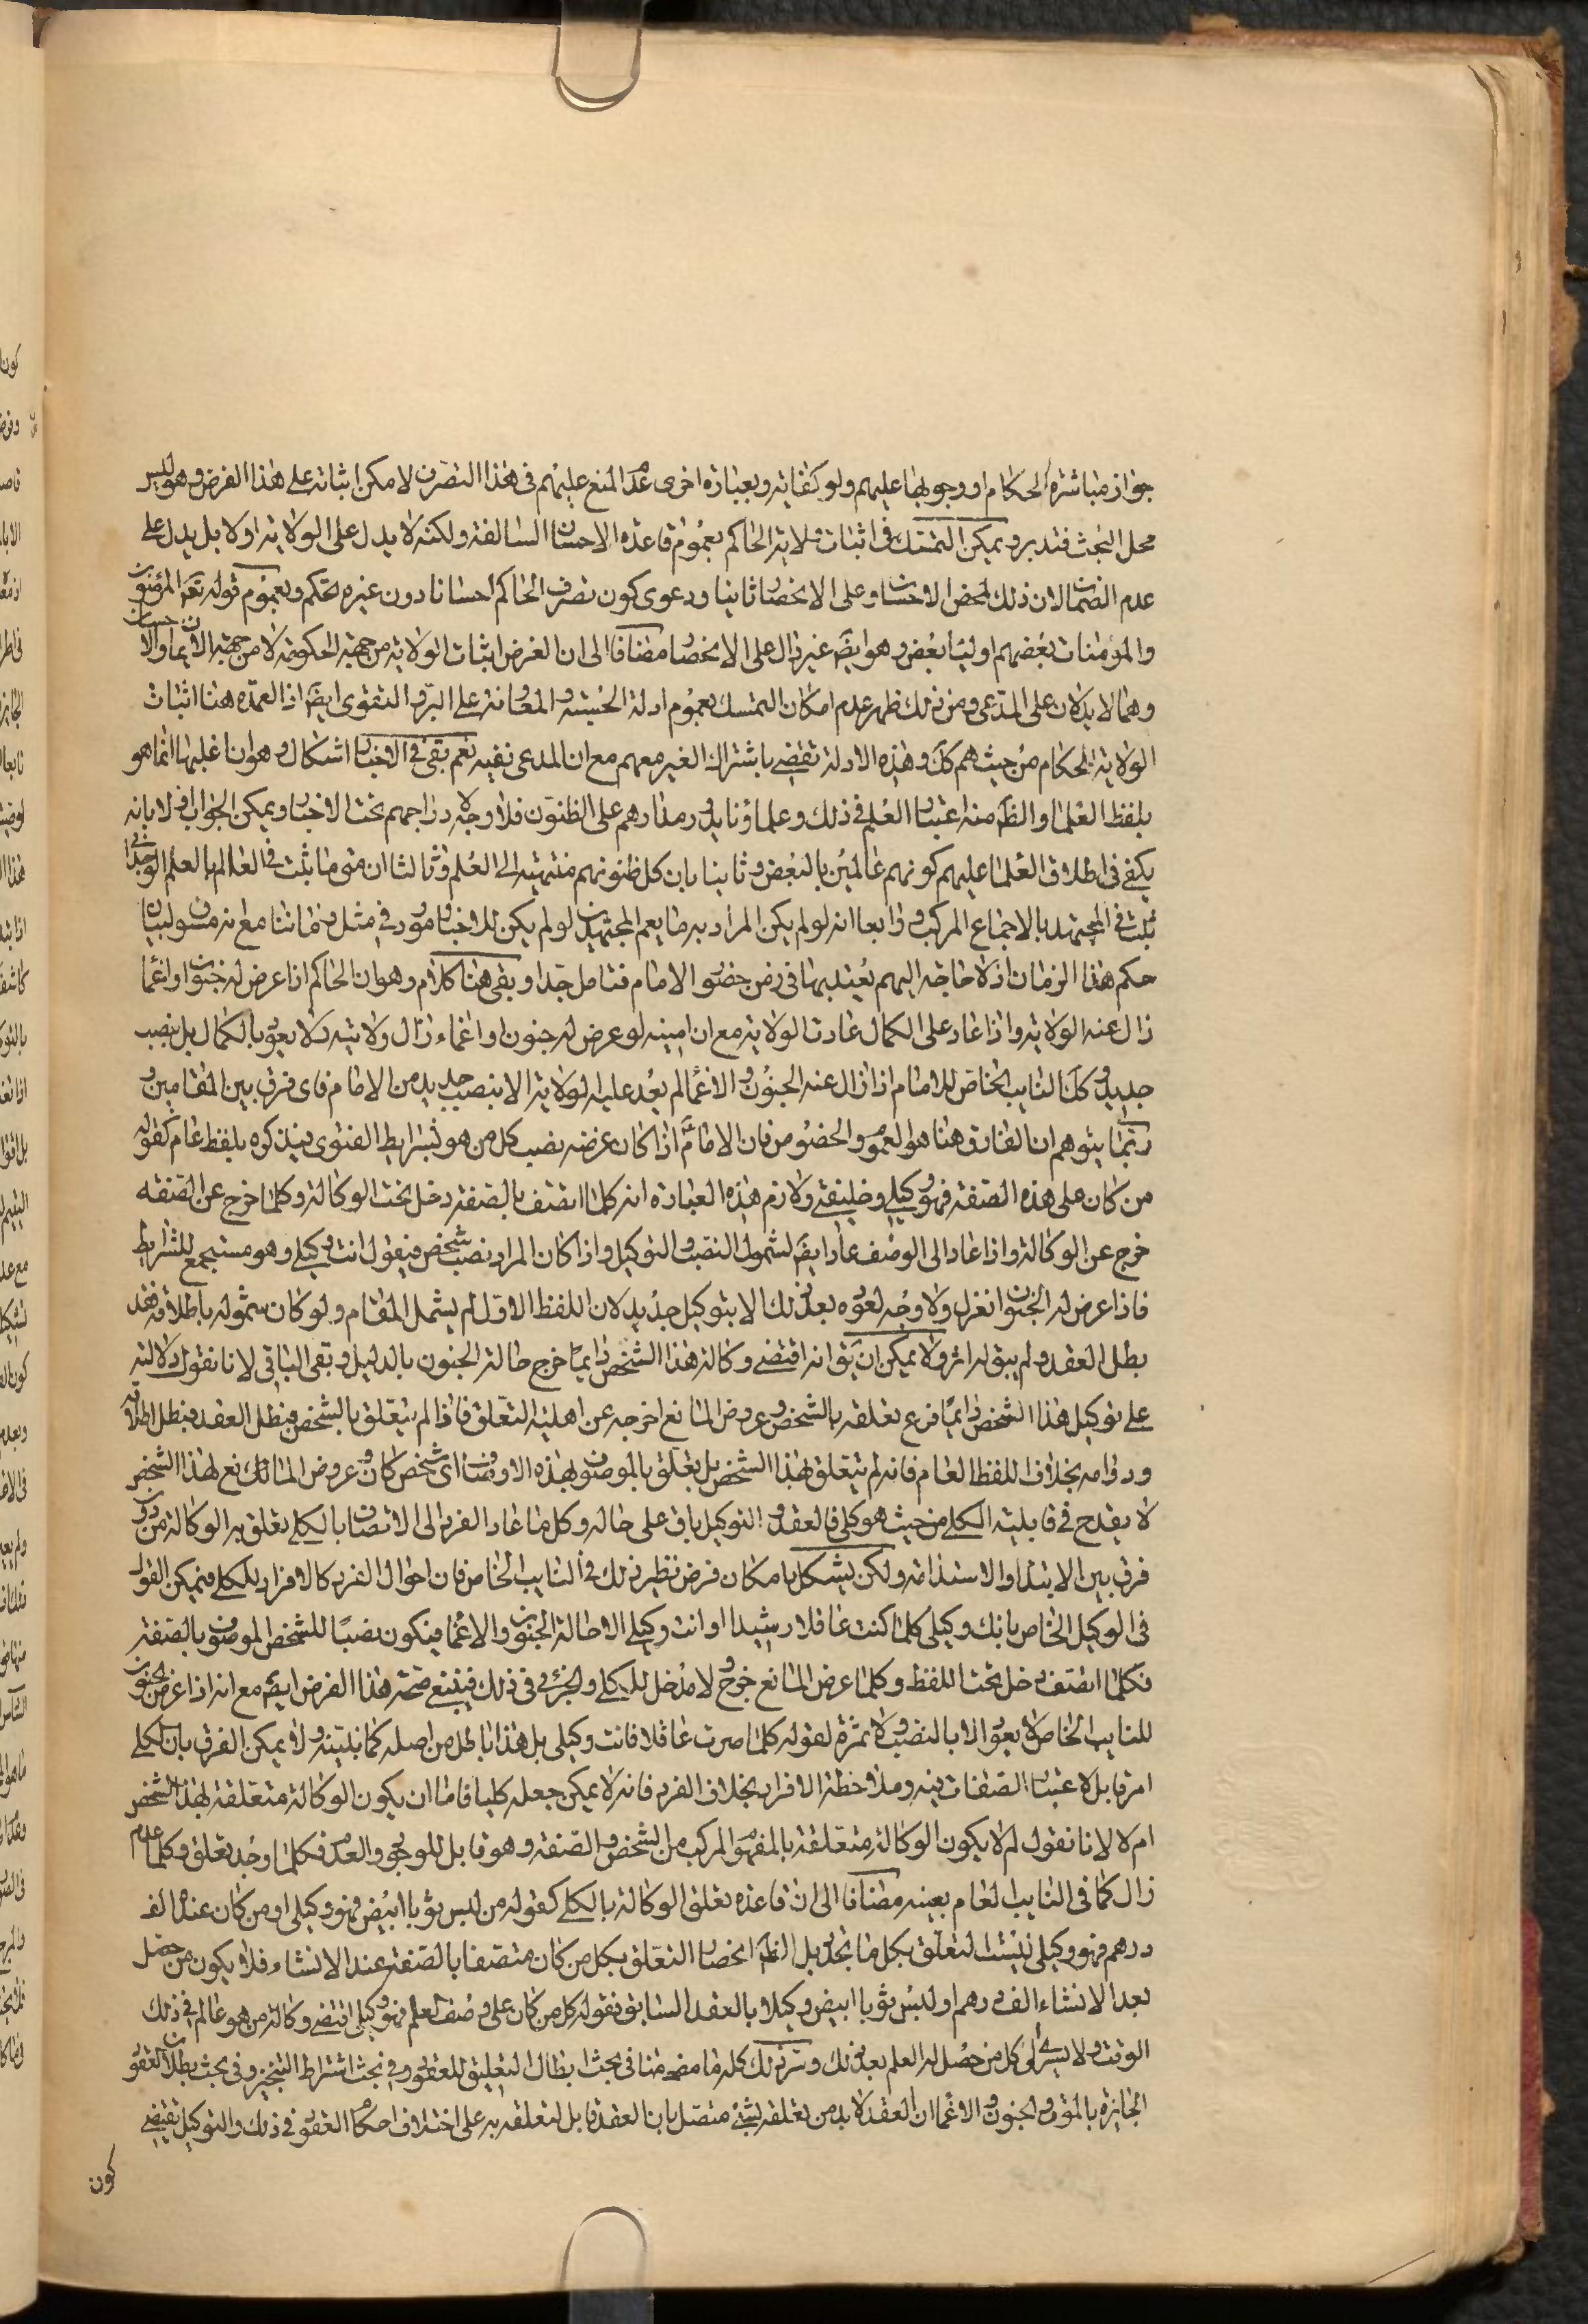 جواز مباشرة الحكام او وجوبها عليهم ولو كفاية وبعبارة اخرى عدم المنع عليهم فى هذا التصرف لا مكن اثباته على هذا الفرض وهو ليس
محل البحث فتدبر ويمكن التمسك فى اثبات ولاية الحاكم بعموم قاعدة الاحسان السالفة ولكنه لا يدل على الولاية اولا بل يدل على
عدم الضمان لان ذلك لمحض الاحسان وعلى الانحصار ثانيا ودعوى كون تصرف الحاكم احسانا دون غيره تحكم وبعموم قوله تعالى المؤمنون
والمؤمنات بعضهم اولياء بعض وهو ايضا غير دال على الانحصار مضافا الى ان الغرض اثبات الولاية من جهة الحكومة لا من جهة الايمان والاحسان
وهما لا يدلان على المدعى ومن ذلك ظهر عدم امكان التمسك بعموم ادلة الحسبة والمعاونة على البر والتقوى ايضا اذ العمدة هنا اثبات
الولاية للحكام من حيث هم كك وهذه الادلة تقضى باشتراك الغير معهم مع ان المدعى نفيه نعم بقى فى الاخبار اشكال وهو ان اغلبها انما هو
بلفظ العلماء والظ منه اعتبار العلم فى ذلك وعلماؤنا يدور مدارهم على الظنون فلا وجه لاندراجهم تحت الاخبار ويمكن الجواب اولا بانه
يكفى فى اطلاق العلماء عليهم كونهم عالمين بالبعض وثانيا بان كل ظنونهم منتهية الى العلم وثالثا ان متى ما يثبت فى العالم بالعلم الوجدانى
يثبت فى المجتهد بالاجماع المركب ورابعا انه لو لم يكن المراد به ما يعم المجتهدين لو لم يكن للاخبار مورد فى مثل زماننا مع انه مسوق لبيان
حكم هذا الزمان اذ لا حاجة اليهم يعتد بها فى زمن حضور الامام فتامل جدا وبقى هنا كلام وهو ان الحاكم اذا عرض له جنون او اغماء
زال عنه الولاية واذا عاد على الكمال عادت الولاية مع ان امينه لو عرض له جنون او اغماء زال ولايته ولا يعود بالكمال بل بنصب
جديد وكذا النايب الخاص للامام اذا زال عنه الجنون والاغماء لم يعد عليه الولاية الا بنصب جديد من الامام فاى فرق بين المقامين و
ربما يتوهم ان الفارق هنا هو العموم والخصوص فان الامام اذا كان غرضه نصب كل من هو بشرايط الفتوى فيذكره بلفظ عام كقوله
من كان على هذه الصفة فهو وكيلى وخليفتى ولازم هذه العبارة انه كلما اتصف بالصفة دخل تحت الوكالة وكلما خرج عن الصفة
خرج عن الوكالة واذا عاد الى الوصف عاد ايضا لشمول النصب والتوكيل واذا كان المراد نصب شخص فيقول انت وكيلى وهو مستجمع للشرايط
فاذا عرض له الجنون انعزل ولا وجه لعوده بعد ذلك الا بتوكيل جديد لان اللفظ الاول لم يشمل المقام ولو كان شموله باطلاقه فقد
بطل العقد ولم يبق له اثر ولا يمكن ان يق انه اقتضى وكالة هذا الشخص دايما خرج حالة الجنون بالدليل وبقى الباقى لانا نقول دلالته
على توكيل هذا الشخص دايما فرع تعلقه بالشخص وعروض المانع اخرجه عن اهلية التعلق فاذا لم يتعلق بالشخص فبطل العقد فبطل اطلاقه
ودوامه بخلاف اللفظ العام فانه لم يتعلق بهذا الشخص بل تعلق بالموصوف بهذه الاوصاف اى شخص كان وعروض المانع لهذا الشخص
لا يقدح فى قابلية الكلى من حيث هو كلى فالعقد والتوكيل باق على حاله وكل ما عاد الفرد الى الاتصاف بالكلى تعلق به الوكالة من دون
فرق بين الابتداء والاستدامة ولكن يشكل بامكان فرض نظير ذلك فى النايب الخاص فان احوال الفرد كالافراد للكلى فيمكن القول
فى الوكيل الخاص بانك وكيلى كلما كنت عاقلا رشيدا او انت وكيلى الا حالة الجنون والاغماء فيكون نصبا للشخص الموصوف بالصفة
فكلما اتصف دخل تحت اللفظ وكلما عرض المانع خرج ولا مدخل للكلى والجزئى فى ذلك فينبغى صحة هذا الفرض ايضا مع انه اذا عرض الجنون
للنايب الخاص لا يعود الا بالنصب ولا ثمرة لقوله كلما صرت عاقلا فانت وكيلى بل هذا باطل من اصله كما بينته ولا يمكن الفرق بان الكلى
امر قابل لاعتبار الصفات فيه وملاحظة الافراد بخلاف الفرد فانه لا يمكن جعله كليا فاما ان يكون الوكالة متعلقة بهذا الشخص
ام لا لانا نقول لم لا يكون الوكالة متعلقة بالمفهوم المركب من الشخص والصفة وهو قابل للوجود والعدم فكلما وجد تعلق وكلما عدم
زال كما فى النايب العام بعينه مضافا الى ان قاعدة تعلق الوكالة بالكلى كقوله من لبس ثوبا ابيض فهو وكيلى او من كان عنده الف
درهم فهو وكيلى التعلق بكل ما يتجدد بل الظ انحصار التعلق بكل من كان متصفا بالصفة عند الانشاء فلا يكون من حصل
بعد الانشاء الف درهم او لبس ثوبا ابيض وكيلا بالعقد السابق فقوله كل من كان على وصف العلم فهو وكيلى اقتضى وكالة من هو عالم فى ذلك
الوقت ولا يسرى الى كل من حصل له العلم بعد ذلك وسر ذلك كله ما مضى منا فى بحث ابطال التعليق للعقود وفى بحث اشتراط التنجيز وفى بحث بطلان العقود
الجائزة بالموت والجنون والاغماء ان العقد لا بد من تعلقه بشئ متصل بان العقد قابل لتعلقه به على اختلاف احكام العقود فى ذلك والتوكيل تقتضى
كون